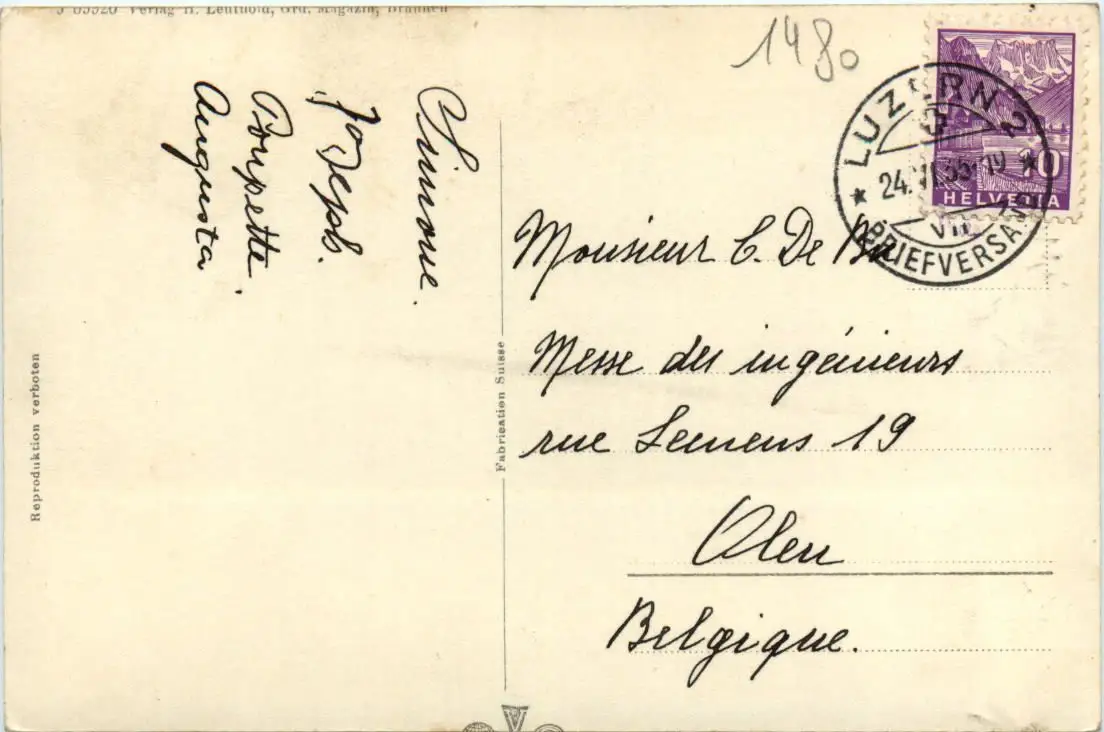 J 03920 Verlag H. Leuthold, Grd. Magazin, Brunnen
1480
Simone.
Joseph.
Poupette.
Augusta
Reproduktion verboten
Fabrication Suisse
LUZERN 2
24. VII. 35 - 19
VII
BRIEFVERSAND
10
HELVETIA
Monsieur C. De
Messe des ingénieurs
rue Semens 19
Olen
Belgique.